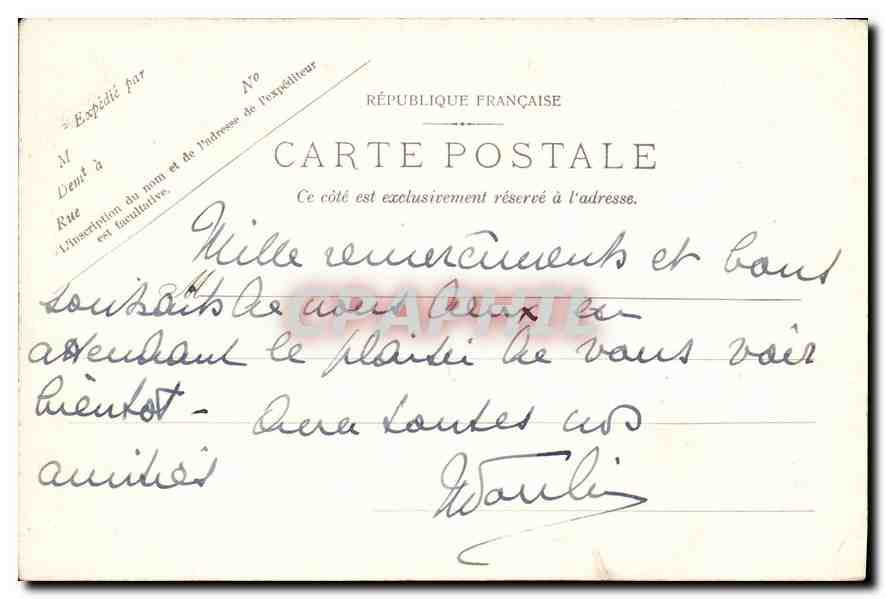 Expédié par
M
Demt à
Rue
No
L'inscription du nom et de l'adresse de l'expéditeur
est facultative.
RÉPUBLIQUE FRANÇAISE
CARTE POSTALE
Ce côté est exclusivement réservé à l'adresse.
Mille remerciments et bons
souhaits de nous deux en
attendant le plaisir de vous voir
bientot - Avec toutes nos
amitiés
Moulin
CPAPHIL